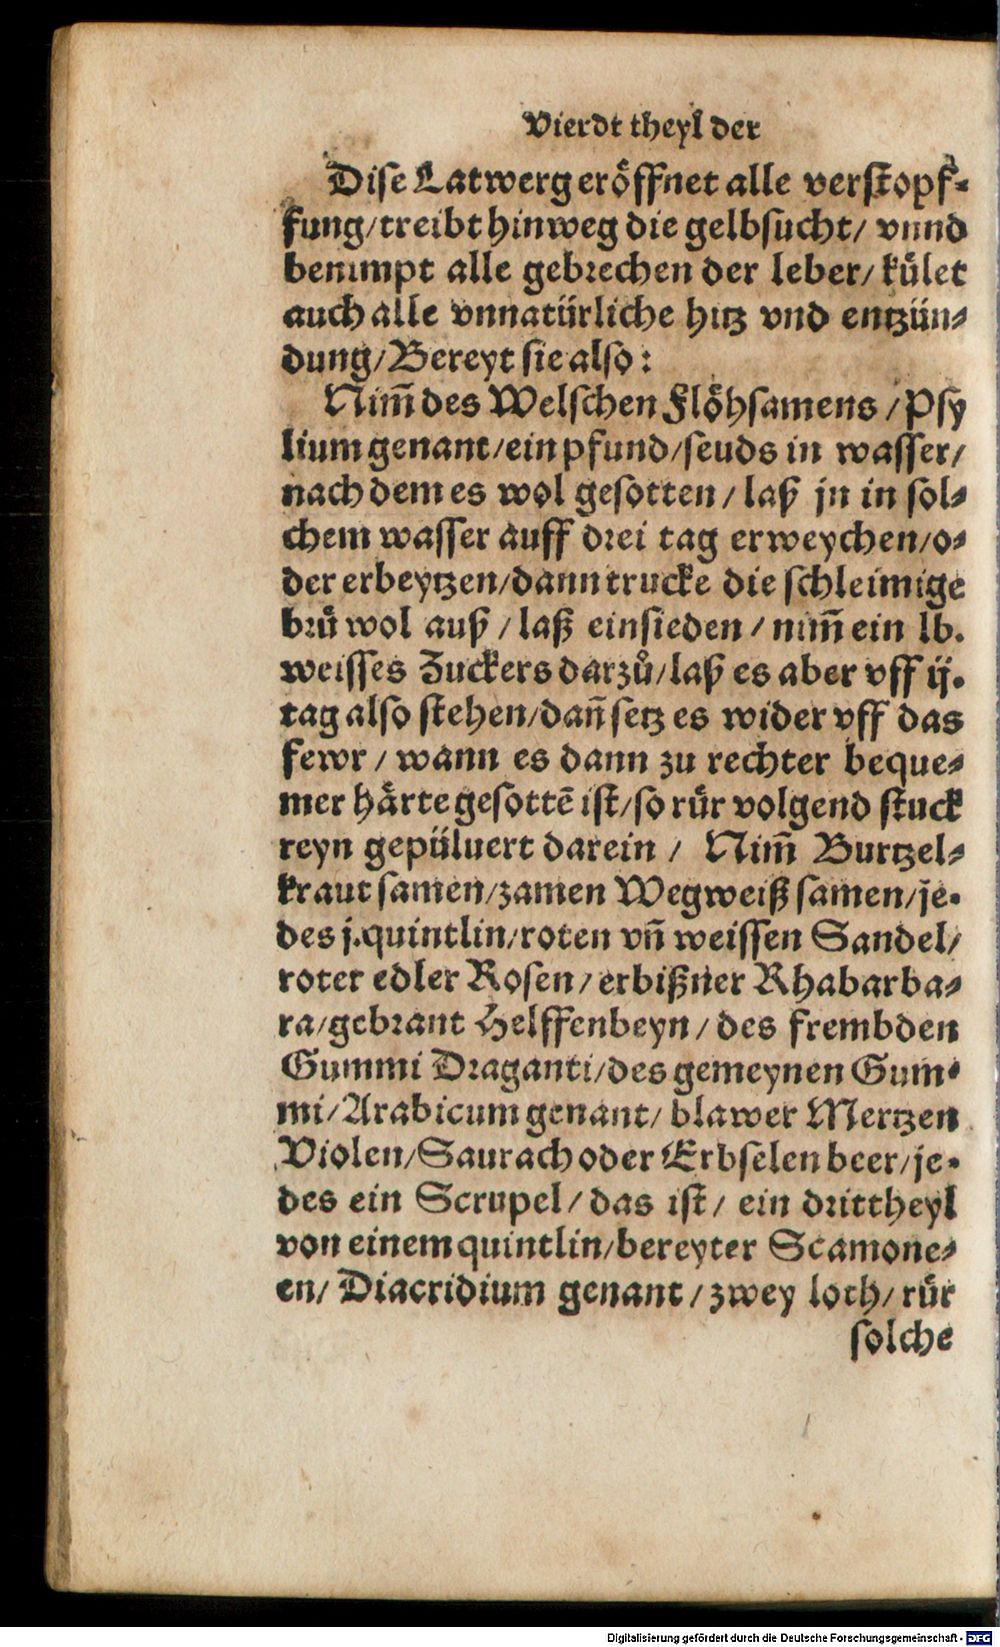 Vierdt theyl der
Dise Latwerg eröffnet alle verstopf-
fung/treibt hinweg die gelbsucht/ vnnd
benimpt alle gebrechen der leber/ kuͤlet
auch alle vnnatürliche hitz vnd entzün-
dung/Bereyt sie also:
Nim̃ des Welschen Flöhsamens /Psy
lium genant/ein pfund/seuds in wasser/
nach dem es wol gesotten / laß jn in sol-
chem wasser auff drei tag erweychen/o-
der erbeytzen/dann trucke die schleimige
bruͤ wol auß / laß einsieden / nim̃ ein lb.
weisses Zuckers darzuͦ/laß es aber vff ij.
tag also stehen/dañ setz es wider vff das
fewr / wann es dann zu rechter beque-
mer haͤrte gesottē ist/so ruͤr volgend stuck
reyn gepüluert darein / Nim̃ Burtzel-
kraut samen/zamen Wegweiß samen/je-
des j.quintlin/roten vñ weissen Sandel/
roter edler Rosen / erbißner Rhabarba-
ra/gebrant Helffenbeyn / des frembden
Gummi Draganti/des gemeynen Gum-
mi/Arabicum genant/ blawer Mertzen
Violen/Saurach oder Erbselen beer/je-
des ein Scrupel/ das ist/ ein drittheyl
von einem quintlin/bereyter Scamone-
en/ Diacridium genant / zwey loth/ ruͤr
solche
Digitalisierung gefördert durch die Deutsche Forschungsgemeinschaft - DFG